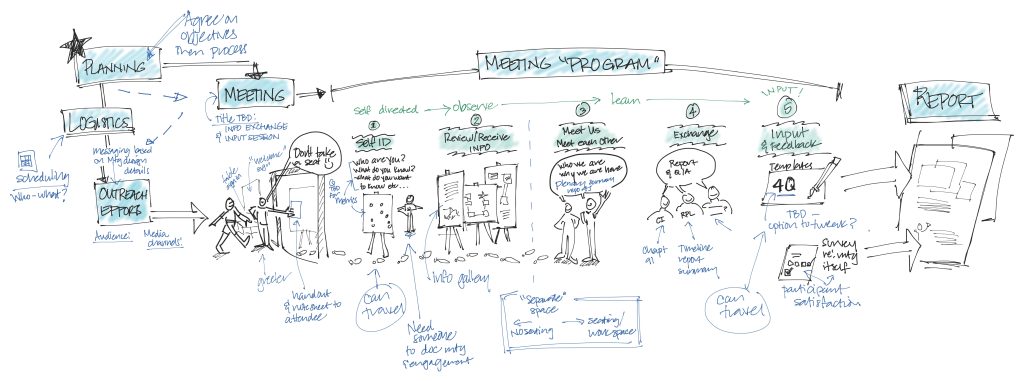 Agree on
objectives
then process
PLANNING
MEETING
MEETING "PROGRAM"
REPORT
LOGISTICS
Title TBD:
INFO EXCHANGE
& INPUT SESSION
messaging based
on Mtg design
details
scheduling
Who-what?
OUTREACH
EFFORT
Audience: Media
channels:
"welcome"
Don't take
a seat
greeter
handout
& notesheet to
attendee
self directed
observe
learn
INPUT!
1
Self ID
Who are you?
What do you know?
What do you want
to know etc...
can
travel
Need
someone
to doc mtg
& engagement
2
Review/Receive
INFO
info gallery
3
Meet Us
Meet each other
Who we are
why we are here
"Separate"
space
No seating
seating/
workspace
4
Exchange
Report
& Q/A
CI
RPL
?
Timeline
report
summary
5
Input
& Feedback
Templates
4Q
TBD –
option to tweak?
can
travel
survey
re: mtg
itself
participant
satisfaction